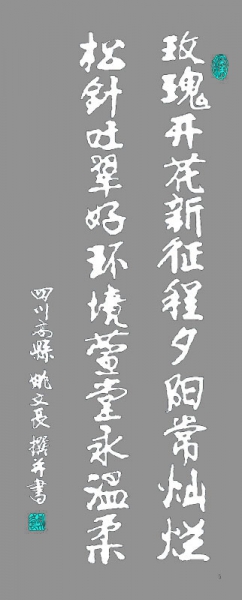 玫瑰开花新征程夕阳常灿烂
松针吐翠好环境萱堂永温柔
四川高縣姚文長撰并書